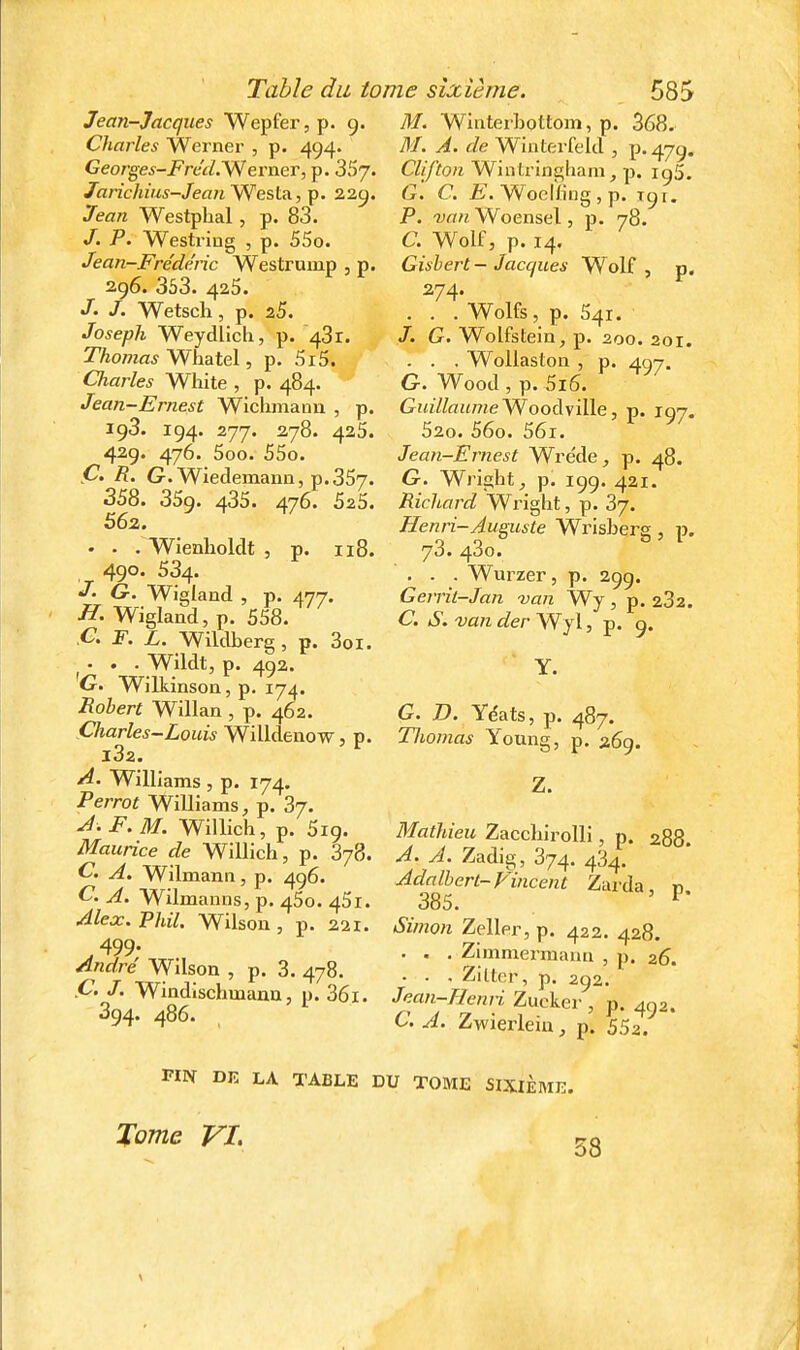 Table du tome sixième. 585
Jean-Jacques Wepfer, p. 9.
Charles Werner , p. 494.
Georges-Fréd. Werner, p. 357.
Jarichius-Jean Westa, p. 229.
Jean Westphal, p. 83.
J. P. Westring , p. 550.
Jean-Frédéric Westrump , p.
296. 353. 425.
J. J. Wetsch, p. 25.
Joseph Weydlich, p. 431.
Thomas Whatel, p. 515.
Charles White , p. 484.
Jean-Ernest Wichmann , p.
193. 194. 277. 278. 425.
429. 476. 500. 550.
C. R. G. Wiedemann, p. 357.
358. 359. 435. 476. 525.
562.
. . . Wienholdt , p. 118.
490. 534.
J. G. Wigland , p. 477.
H. Wigland, p. 558.
C. F. L. Wildberg, p. 301.
. . . Wildt, p. 492.
G. Wilkinson, p. 174.
Robert Willan , p. 462.
Charles-Louis Willdenow, p.
132.
A. Williams , p. 174.
Perrot Williams, p. 37.
A. F. M. Willich, p. 519.
Maurice de Willich, p. 378.
C. A. Wilmann, p. 496.
C. A. Wilmanns, p. 450. 451.
Alex. Phil. Wilson, p. 221.
499.
André Wilson , p. 3. 478.
C. J. Windischmann, p. 361.
394. 486.
M. Winterbottom, p. 368.
M. A. de Winterfeld , p. 479.
Clifton Wintringham, p. 195.
G. C. E. Woelfing, p. 191.
P. van Woensel, p. 78.
C. Wolf, p. 14.
Gisbert-Jacques Wolf , p.
274.
. . . Wolfs, p. 541.
J. G. Wolfstein, p. 200. 201.
. . . Wollaston , p. 497.
G. Wood , p. 516.
Guillaume Woodville, p. 197.
520. 560. 561.
Jean-Ernest Wréde, p. 48.
G. Wright, p. 199. 421.
Richard Wright, p. 37.
Henri-Auguste Wrisberg , p.
73. 430.
. . . Wurzer, p. 299.
Gerrit-Jan van Wy , p. 232.
C. S. van der Wyl, p. 9.
Y.
G. D. Yéats, p. 487.
Thomas Young, p. 269.
Z.
Mathieu Zacchirolli, p. 288.
A. A. Zadig, 374. 434.
Adalbert-Vincent Zarda, p.
385.
Simon Zeller, p. 422. 428.
. . . Zimmermann , p. 26.
. . . Zitter, p. 292.
Jean-Henri Zucker , p. 492.
C. A. Zwierlein, p. 552.
FIN DE LA TABLE DU TOME SIXIÈME.
Tome VI. 38